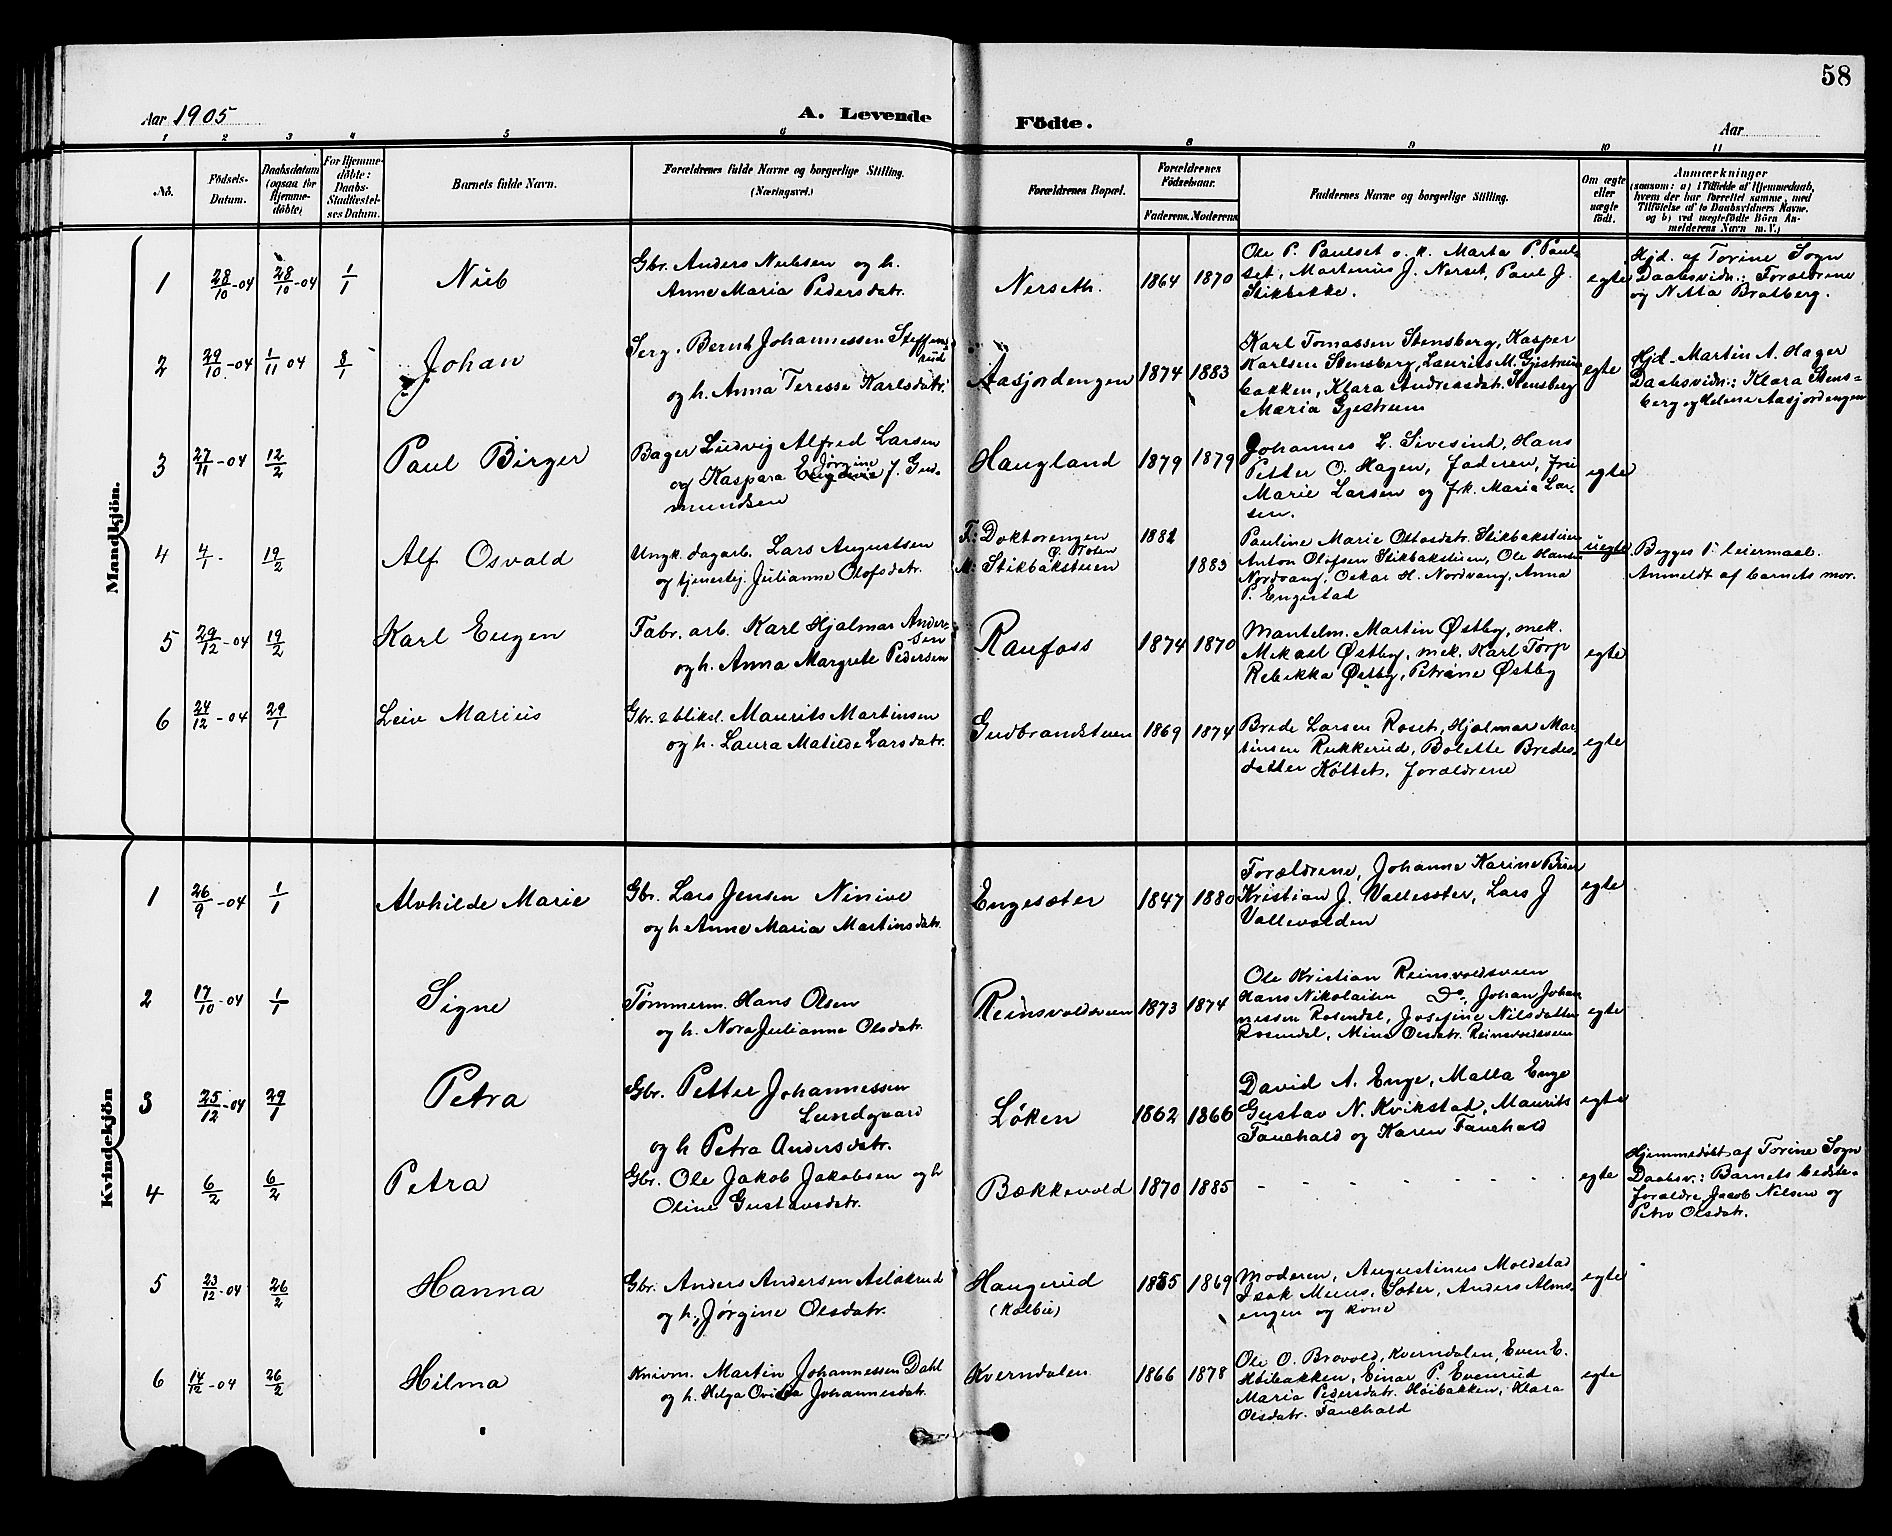 58
Aar 1905
A. Levende Födte.
Aar
1 2 3 4 5 6 8 9 10 11
No.
Födsels-Datum.
Daabsdatum (ogsaa for Hjemme-döbte)
For Hjemme-döbte: Daabs-Stadfæstel-ses Datum.
Barnets fulde Navn.
Forældrenes fulde Navne og borgerlige Stilling. (Næringsvei.)
Forældrenes Bopæl.
Forældrenes Födselsaar.
Faderens. Moderens.
Faddernes Navne og borgerlige Stilling.
Om ægte eller uægte födt.
Anmærkninger
(saasom: a) i Tilfælde af Hjemmedaab, hvem der har forrettet samme, med Tilföielse af to Daabsvidners Navne, og b) ved uægtefödte Börn An-melderens Navn m. V.)
Mandkjön.
1 28/10-04 28/10-04 1/1 Nils
Gbr. Anders Nielsen og h.
Anne Maria Pedersdatr.
Nerseth. 1864 1870
Ole P. Paulset o. k. Marta P. Paul-
set, Martenius J. Nerset, Paul J.
Stikbakke.
egte
Hjd. af Torine Sogn
Daabsvidn.: Forældrene
og Nitta Bratberg.
2 29/10-04 1/11 04 8/1 Johan
Serg. Bernt Johannessen Steffens-
rud
og h. Anna Terese Karlsdatr.
Aasjordengen 1874 1883
Karl Tomassen Stensberg, Kasper
Karlsen Stensberg, Laurits M. Gjestrum-
bakken, Klara Andreasdatr. Stensberg
Maria Gjestrum
egte
Hjd. Martin A. Hager
Daabsvidn.: Klara Stens-
berg og Helene Aasjordengen
3 27/11-04 12/2 Paul Birger
Bager Ludvig Alfred Larsen
og Kaspara Jørgine J. Gud-
mundsen
Haugland 1879 1879
Johannes L. Sivesind, Hans
Petter O. Hagen, Faderen, Fru
Marie Larsen og Frk. Maria Lar-
sen.
egte
4 4/1 19/2 Alf Osvald
Ungk. dagarb. Lars Augustsen
og tjenestej. Julianne Olofsdatr.
F: Doktorengen
Ø. Toten
M: Stikbaksteien
1882
1883
Pauline Marie Ottosdatr. Stikbakstuen
Anton Olofsen Stikbakstuen, Ole Hansen
Nordvang, Oskar H. Nordvang, Anna
P. Engestad
uegte
Begges 1ste leiermaal.
Anmeldt af barnets mor.
5 29/12-04 19/2 Karl Eugen
Fabr. arb. Karl Hjalmar Ander-
sen
og h. Anna Margrete Pedersen
Raufoss 1874 1870
Mantelm. Martin Østby, mek.
Mikael Østby, mek. Karl Torp
Rebekka Østby, Petrine Østby
egte
6 24/12-04 29/1 Leiv Marius
Gbr. & bliksl. Maurits Martinsen
og h. Laura Matilde Larsdatr.
Gudbrandsteien 1869 1874
Brede Larsen Roset, Hjalmar Mar-
tinsen Rukkerud, Bolette Bredes-
datter Køltet, Forældrene
egte
Kvindekjön
1 26/9-04 1/1 Alvhilde Marie
Gbr. Lars Jensen Ninive
og h Anne Maria Martinsdatr.
Engesæter 1847 1880
Forældrene, Johanne Karine Brun
Kristian J. Vallesæter, Lars J
Vallevolden
egte
2 17/10-04 1/1 Signe
Tømmerm. Hans Olsen
og h. Nora Julianne Olsdatr.
Reinsvoldsveen 1873 1874
Ole Kristian Reinsvoldsveen
Hans Nikolaisen Do, Johan Johan-
nessen Rosendal, Josefine Nilsdatter
Rosendal, Mina Olsdatr. Reinsvoldsveen
egte
3 25/12-04 29/1 Petra
Gbr. Petter Johannessen
Lundgaard
og h Petra Andersdatr.
Løken 1862 1866
David A. Enge, Malla Enge
Gustav N. Kvikstad, Maurits
Fauchald og Karen Fauchald
egte
4 6/2 6/2 Petra
Gbr. Ole Jakob Jakobsen og h
Oline Gustavsdatr.
Bækkevold 1870 1885
- - - - - - -
egte
Hjemmedøbt af Torine Sogn
Daabsv.: Barnets bedste-
forældre Jacob Nilsen og
Petra Olsdatr.
5 23/12-04 26/2 Hanna
Gbr. Anders Andersen Aslakrud
og h. Jørgine Olsdatr.
Haugerud
(Kolbu)
1855 1869
Moderen, Augustinus Moldstad
Isak Muus, Sæter, Anders Alms-
engen og kone
egte
6 14/12-04 26/2 Hilma
Knivm. Martin Johannessen Dahl
og h. Helga Ovidia Johannesdatr.
Kverndalen 1866 1878
Ole O. Brovold, Kverndalen, Even E.
Høibakken, Einar P. Evenrud
Maria Pedersdatr. Høibakken, Klara
Olsdatr. Fauchald
egte